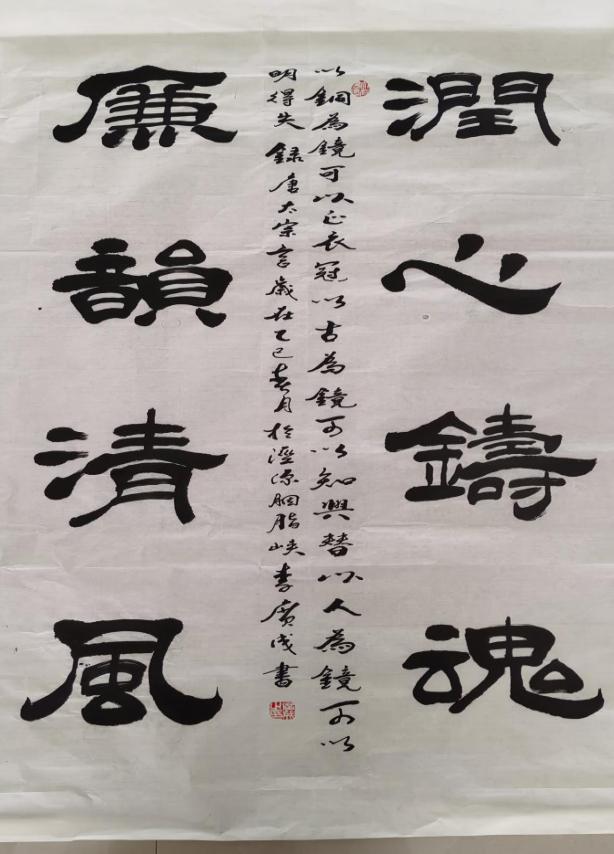 潤心鑄魂
以銅為鏡可以正衣冠以古為鏡可以知興替以人為鏡可以
明得失録唐太宗言歲在乙巳春月於涇源胭脂峽李廣成書
廉韻清風